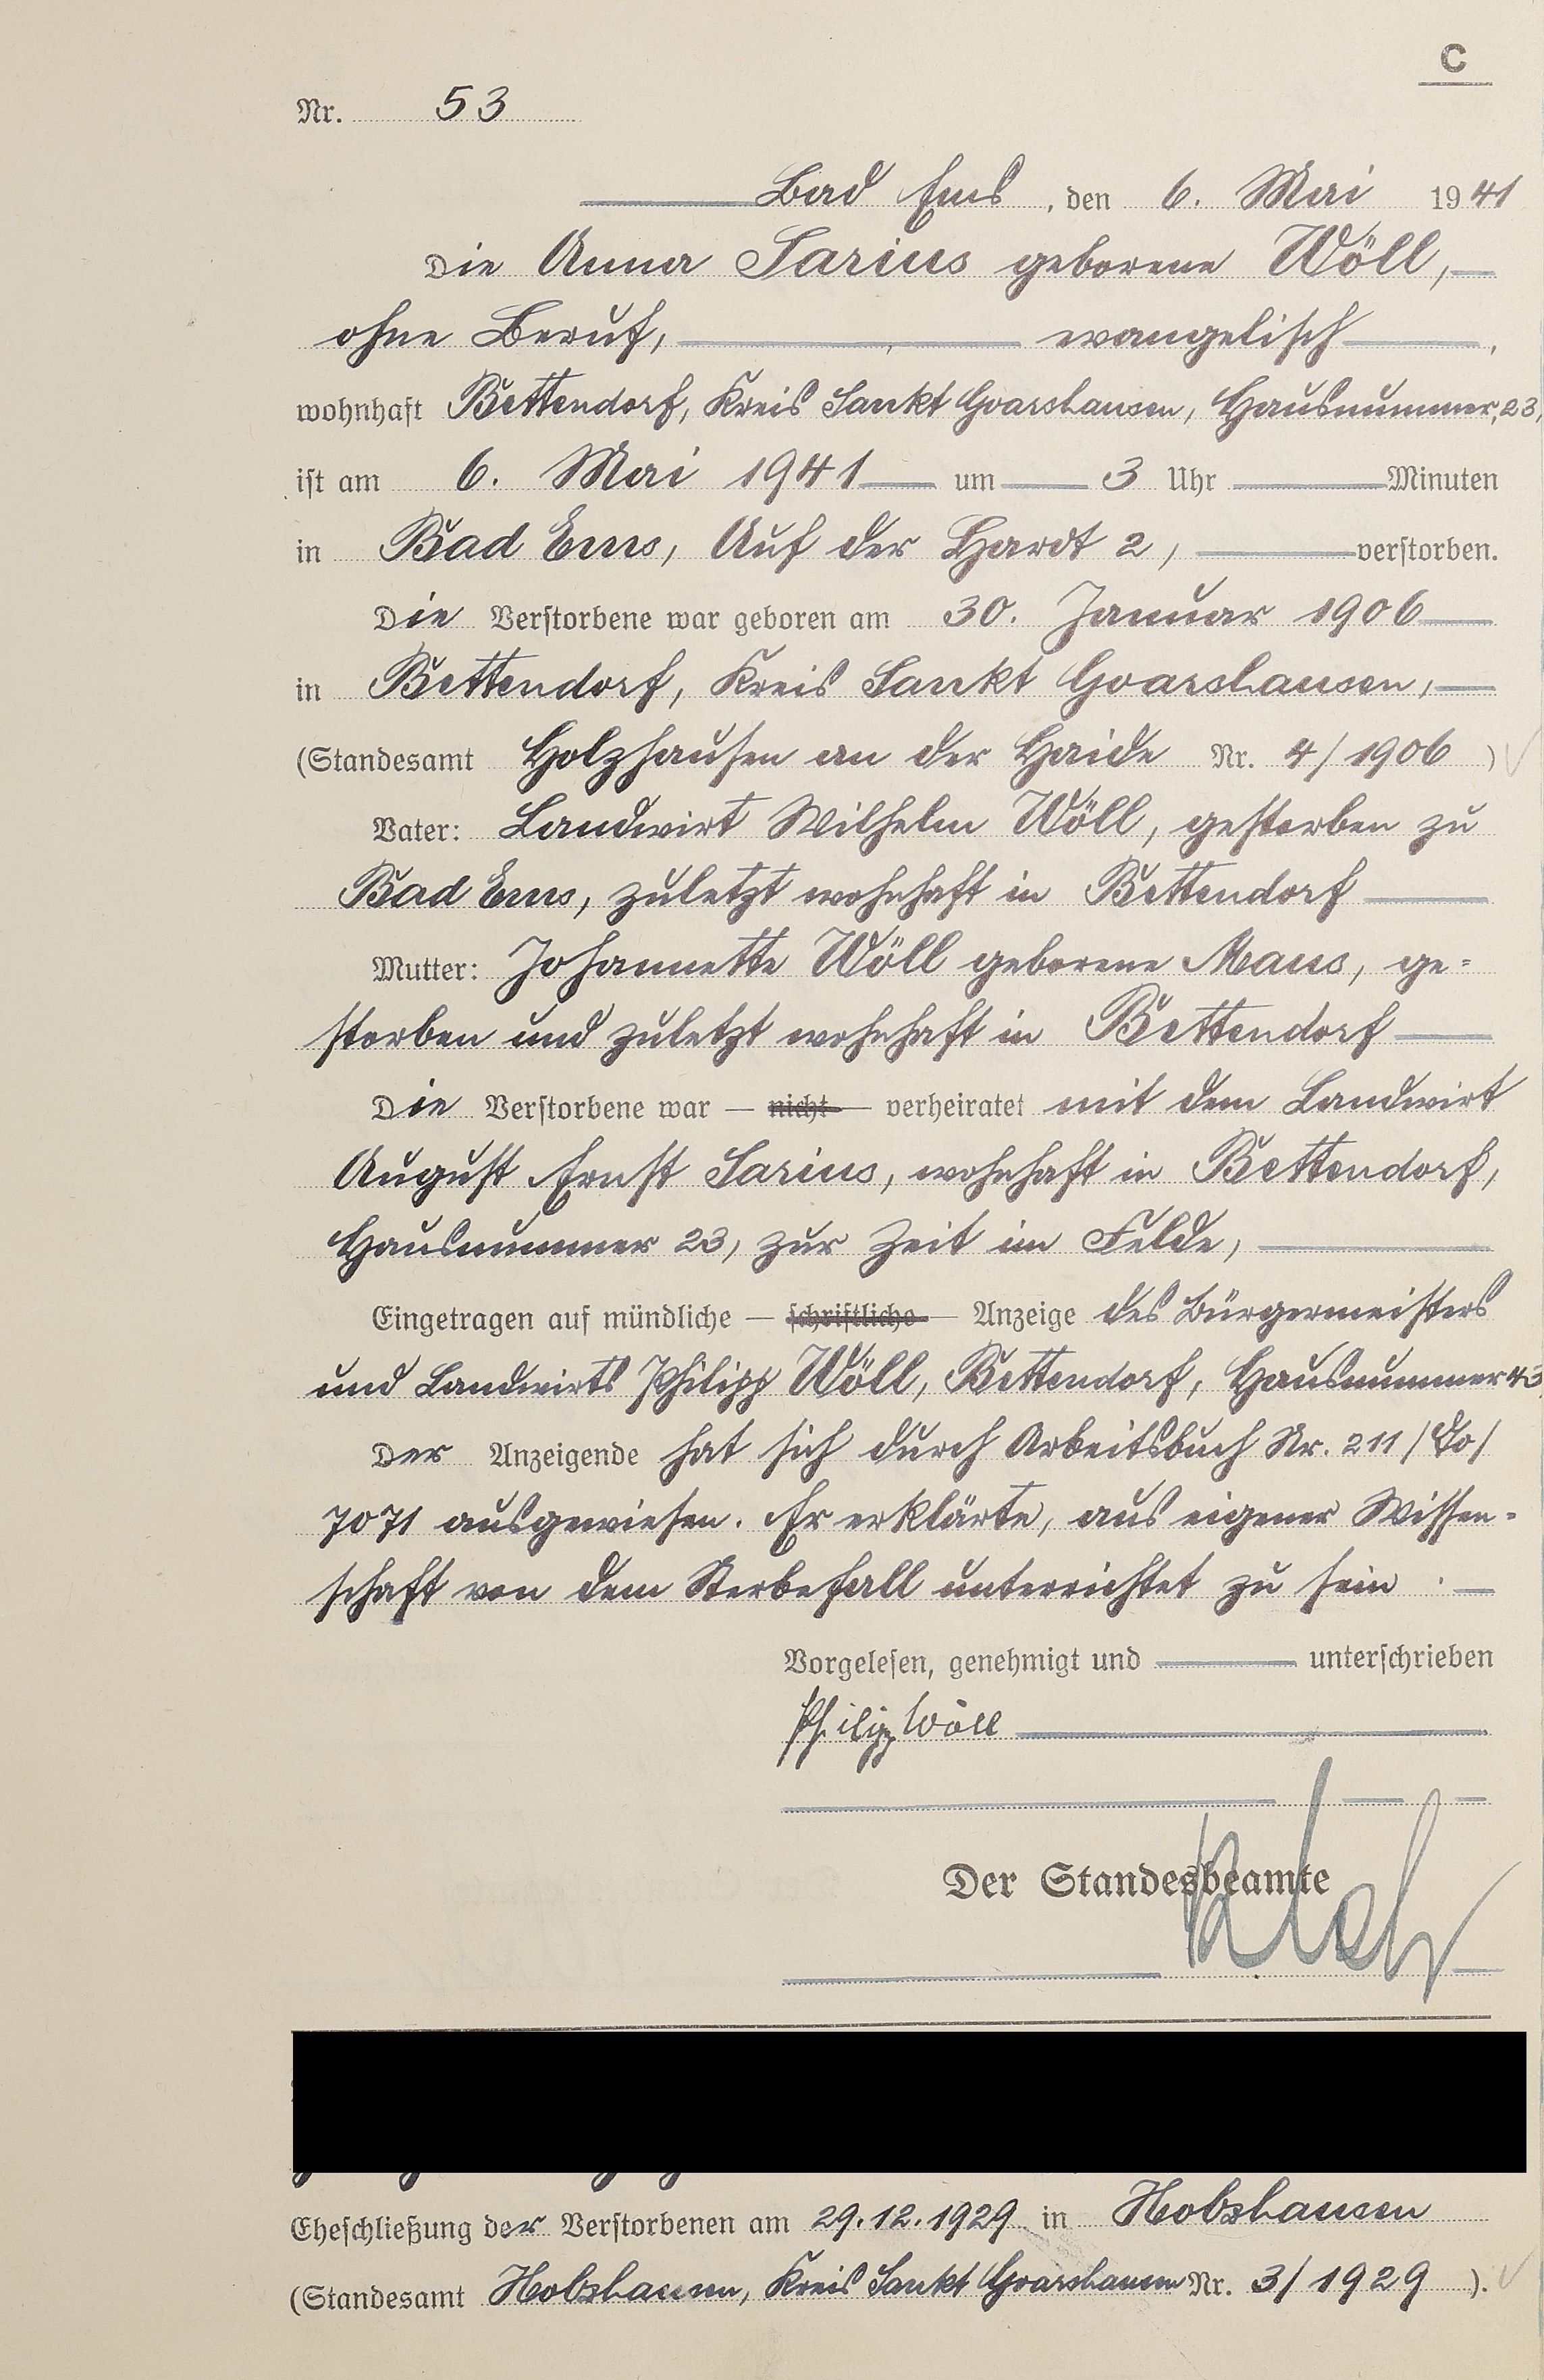 C
Nr. 53
Bad Ems, den 6. Mai 1941
Die Anna Sarius geborene Wöll,
ohne Beruf, evangelisch,
wohnhaft Bettendorf, Kreis Sankt Goarshausen, Hausnummer 23,
ist am 6. Mai 1941 um 3 Uhr Minuten
in Bad Ems, Auf der Hardt 2, verstorben.
Die Verstorbene war geboren am 30. Januar 1906
in Bettendorf, Kreis Sankt Goarshausen,
(Standesamt Holzhausen an der Haide Nr. 4/1906)
Vater: Landwirt Wilhelm Wöll, gestorben zu
Bad Ems, zuletzt wohnhaft in Bettendorf
Mutter: Johannette Wöll geborene Maus, ge=
storben und zuletzt wohnhaft in Bettendorf
Die Verstorbene war — nicht — verheiratet mit dem Landwirt
August Ernst Sarius, wohnhaft in Bettendorf,
Hausnummer 23, zur Zeit im Felde,
Eingetragen auf mündliche — schriftliche — Anzeige des Bürgermeisters
und Landwirts Philipp Wöll, Bettendorf, Hausnummer 43.
Der Anzeigende hat sich durch Arbeitsbuch Nr. 211/Do/
7071 ausgewiesen. Er erklärte, aus eigener Wissen=
schaft von dem Sterbefall unterrichtet zu sein.
Vorgelesen, genehmigt und unterschrieben
Philipp Wöll
Der Standesbeamte
Eheschließung der Verstorbenen am 29.12.1929 in
(Standesamt Kreis Sankt Goarshausen Nr. 3/1929).